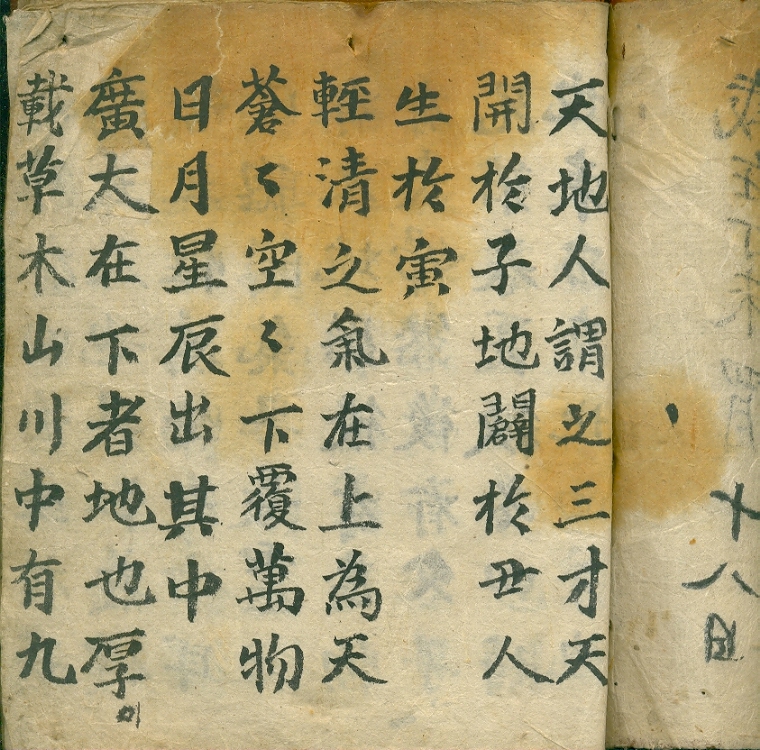 十八日
天地人謂之三才天
開於子地闢於丑人
生於寅
輕清之氣在上為天
蒼〻空〻下覆萬物
日月星辰出其中
廣大在下者地也厚이
載草木山川中有九